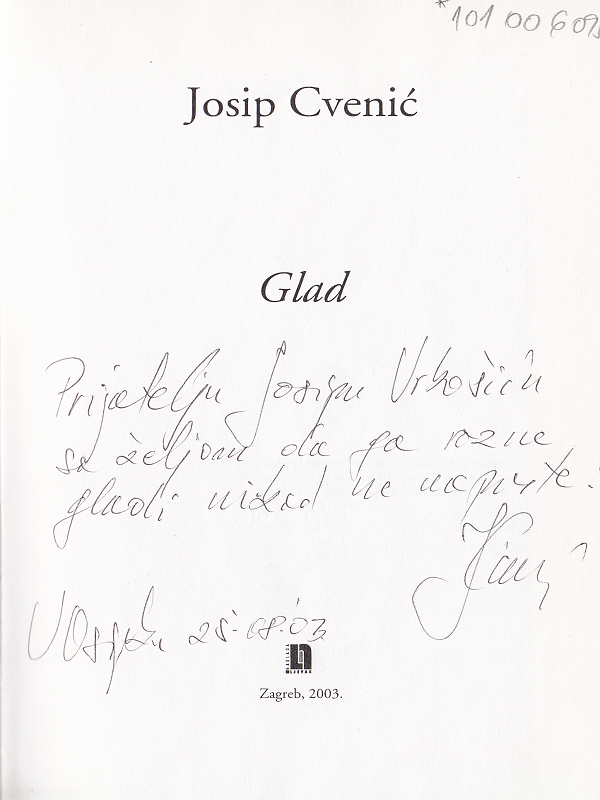 *101 00 609
Josip Cvenić
Glad
Prijatelju Josipu Vrkošiću
sa željom da ga razne
gladi nikad ne napuste!
U Osijeku 25.08.03
NAKLADA
LJEVAK
Zagreb, 2003.